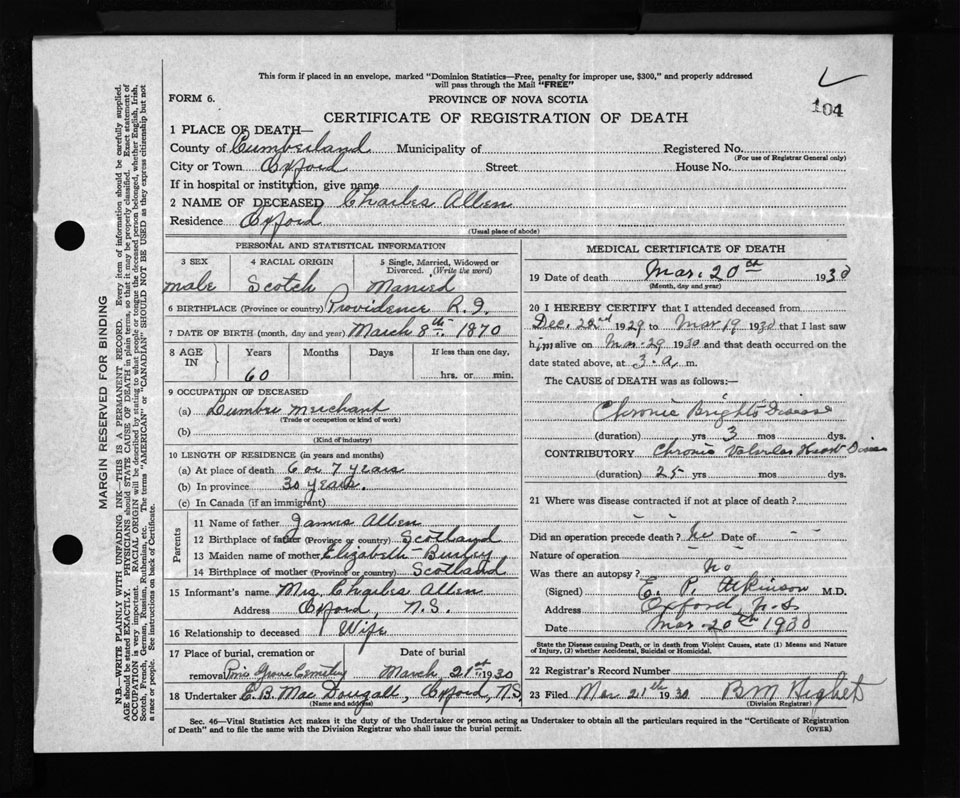 This form if placed in an envelope, marked "Dominion Statistics—Free, penalty for improper use, $300," and properly addressed
will pass through the Mail "FREE"
104
FORM 6.
PROVINCE OF NOVA SCOTIA
CERTIFICATE OF REGISTRATION OF DEATH
1 PLACE OF DEATH—
County of Cumberland Municipality of Registered No.
(For use of Registrar General only)
City or Town Oxford Street House No.
If in hospital or institution, give name
2 NAME OF DECEASED Charles Allen
Residence Oxford
(Usual place of abode)
PERSONAL AND STATISTICAL INFORMATION
3 SEX 4 RACIAL ORIGIN 5 Single, Married, Widowed or
Divorced. (Write the word)
male Scotch Married
6 BIRTHPLACE (Province or country) Providence R.I.
7 DATE OF BIRTH (month, day and year) March 8th. 1870
8 AGE IN Years Months Days If less than one day,
60 hrs. or min.
9 OCCUPATION OF DECEASED
(a) Lumber Merchant
(Trade or occupation or kind of work)
(b)
(Kind of industry)
10 LENGTH OF RESIDENCE (in years and months)
(a) At place of death 6 or 7 years
(b) In province 30 years.
(c) In Canada (if an immigrant)
Parents
11 Name of father James Allen
12 Birthplace of father (Province or country) Scotland
13 Maiden name of mother Elizabeth
14 Birthplace of mother (Province or country) Scotland
15 Informant's name Mrs. Charles Allen
Address Oxford, N.S.
16 Relationship to deceased Wife
17 Place of burial, cremation or Date of burial
removal Pine Grove Cemetery March 21st 1930
18 Undertaker E. B. Mac Dougall, Oxford, N.S.
(Name and address)
MEDICAL CERTIFICATE OF DEATH
19 Date of death Mar. 20th 1930
(Month, day and year)
20 I HEREBY CERTIFY that I attended deceased from
Dec. 22nd 1929 to Mar 19 1930 that I last saw
him alive on Mar. 1930 and that death occurred on the
date stated above, at 3. a. m.
The CAUSE of DEATH was as follows:—
Chronic Brights Disease
(duration) yrs 3 mos dys.
CONTRIBUTORY Chronic Valvular Heart Disease
(duration) 25 yrs mos dys.
21 Where was disease contracted if not at place of death?
- -
Did an operation precede death? no Date of -
Nature of operation - -
Was there an autopsy? No
(Signed) E. P. Atkinson M.D.
Address Oxford, N.S.
Date Mar. 20th 1930
State the Disease causing Death, or in death from Violent Causes, state (1) Means and Nature
of Injury, (2) whether Accidental, Suicidal or Homicidal.
22 Registrar's Record Number
23 Filed Mar 21th 1930 B M Highet
(Division Registrar)
Sec. 46—Vital Statistics Act makes it the duty of the Undertaker or person acting as Undertaker to obtain all the particulars required in the "Certificate of Registration
of Death" and to file the same with the Division Registrar who shall issue the burial permit.
(OVER)
MARGIN RESERVED FOR BINDING
N.B.—WRITE PLAINLY WITH UNFADING INK—THIS IS A PERMANENT RECORD. Every item of information should be carefully supplied.
AGE should be stated EXACTLY. PHYSICIANS should STATE CAUSE OF DEATH in plain terms, so that it may be properly classified. Exact statement of
OCCUPATION is very important. RACIAL ORIGIN will be described by stating to what people or tongue the deceased person belonged, whether English, Irish,
Scotch, French, German, Russian, Ruthenian, etc. The terms "AMERICAN" or "CANADIAN" SHOULD NOT BE USED as they express citizenship but not
a race or people. See instructions on back of Certificate.